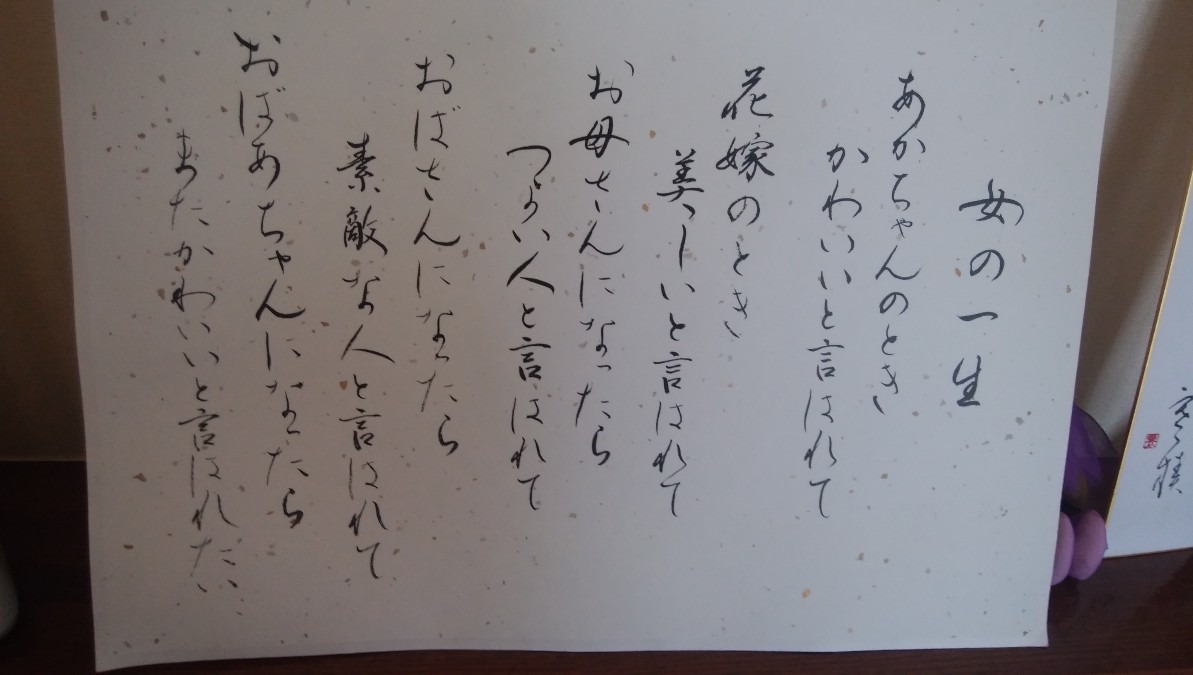 女の一生
あかちゃんのとき
かわいいと言はれて
花嫁のとき
美しいと言はれて
お母さんになったら
つよい人と言はれて
おばさんになったら
素敵な人と言はれて
おばあちゃんになったら
またかわいいと言はれたい